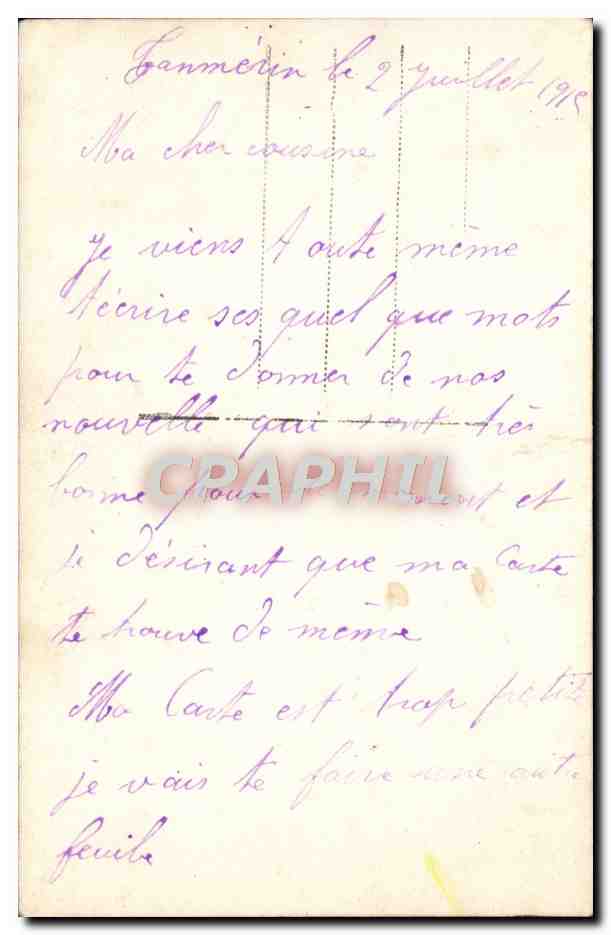 le 2 juillet 1915
Ma cher cousine
je viens toute même
t'écrire ses quel que mots
pour te donner de nos
nouvelle qui sont très
bonne pour le moment et
je désirant que ma Carte
te trouve de même
Ma Carte est trop petite
je vais te faire une autre
feuille
CRAPHIL